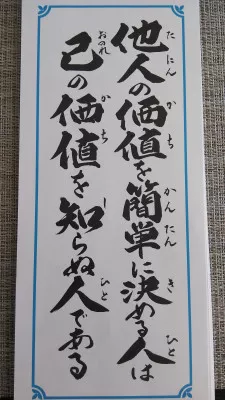 他人の価値を簡単に決める人は
たにん かち かんたん き ひと
己の価値を知らぬ人である
おのれ かち し ひと